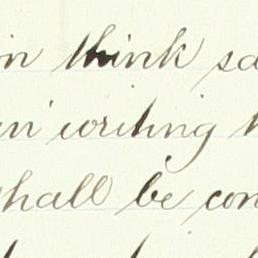 in think sa
in writing
shall be con